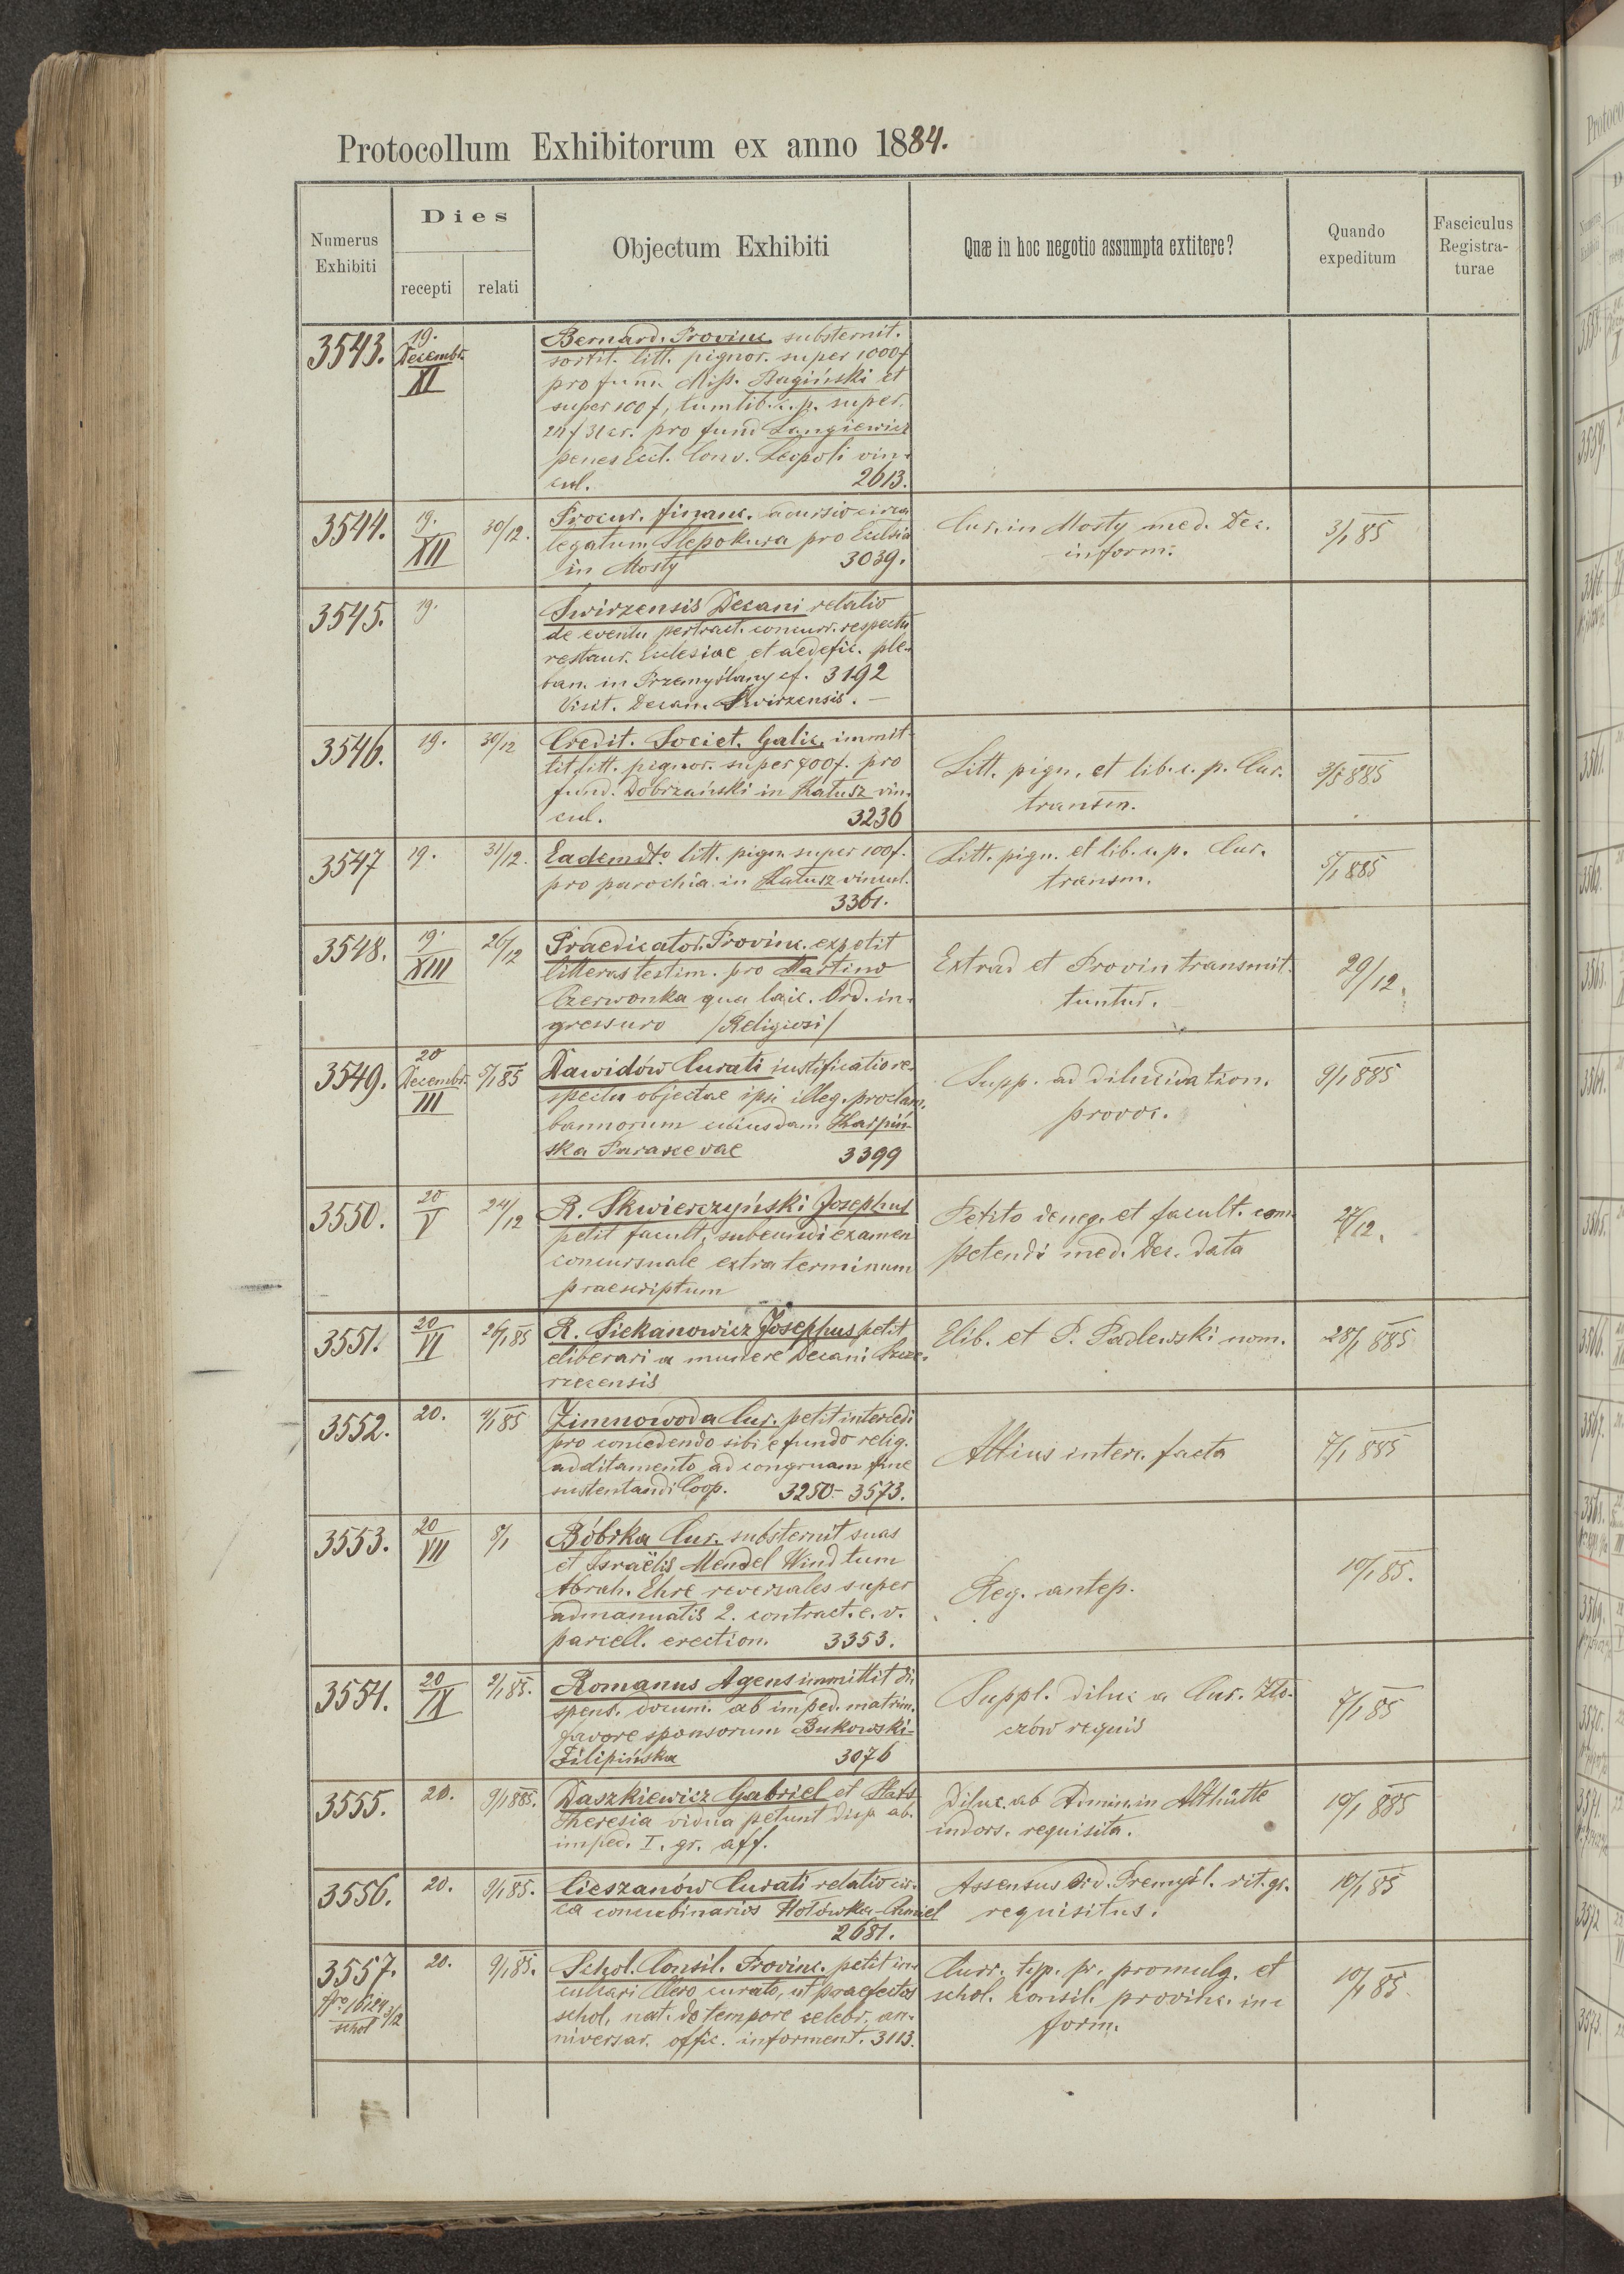 Protocollum Exhibitorum ex anno 1884.
Numerus Exhibiti
Dies
recepti
relati
Objectum Exhibiti
Quæ in hoc negotio assumpta extitere?
Quando expeditum
Fasciculus Registra-
turae
3543.
19.
Decembr.
XI
Bernard. Provinc. substernit.
sortit. litt. pignor. super 1000f
pro fund. Miss. Bagiński et
super 100 f, tum lib. c. p. super
pro fund Langiewicz
penes Eccl. Conv. Leopoli vin-
cul. 2613.
3544.
19.
XII
30/12.
Procur. financ. recursio circa
legatum Slepokura pro Ecclsia
in Mosty 3039.
Cur. in Mosty med. Dec.
inform.
3/1 85
3545.
19.
Swirzensis Decani relatio
de eventu pertract. concurr. respectu
restaur. Ecclesiae et aedific. ple-
ban. in Przemyślany cf. 3192
Visit. Decan. Swirzensis. —
3546.
19.
30/12
Credit. Societ. Galic. immit-
tit litt. pignor. super 700f. pro
fund. Dobrzański in Kałusz vin-
cul. 3236
Litt. pign. et lib. c. p. Cur.
transm.
3/1 885
3547
19.
31/12.
Eadem dto litt. pign. super 100f.
pro parochia in Kałusz vincul.
3361.
Litt. pign. et lib. c. p. Cur.
transm.
5/1 885
3548.
19.
XIII
26/12
Praedicator. Provinc. expetit
litteras testim. pro Martino
Czerwonka qua laic. Ord. in-
gressuro /Religiosi/
Extrad et Provin transmit-
tuntur.
29/12.
3549.
20
Decembr.
III
5/1 85
Dawidów Curati iustificatio re-
spectu objectae ipsi illeg. proclam.
bannorum cuiusdam Karpiń-
ska Parascevae 3399
Supp. ad dilucidation.
provoc.
9/1 885
3550.
20
V
24/12
R. Skwierczyński Josephus
petit facult. subeundi examen
concursuale extra terminum
praescriptum
Petito deneg. et facult. com-
petendi med. Dec. data
27/12.
3551.
20
VI
26/1 85
R. Siekanowicz Josephus petit
eliberari a munere Decani Szcze-
rzecensis
Elib. et P. Padlewski nom.
28/1 885
3552.
20.
4/1 85
Zimnowoda Cur. petit intercedi
pro concedendo sibi e fundo relig.
additamento ad congruam fine
sustentandi Coop. 3250 - 3573.
Altius interc. facta
7/1 885
3553.
20
VII
8/1
Bóbrka Cur. substernit suas
et Israëlis Mendel Wind tum
Abrah. Ehre reversales super
admanuatis 2. contract. e. v.
parcell. erection. 3353.
Reg. antep.
10/1 85.
3554.
20
IX
2/1 85.
Romanus Agens immittit di-
spens. docum. ab imped. matrim.
favore sponsorum Bukowski-
Filipińska 3076
Suppl. diluc a Cur. Zło-
czów requis
7/1 85
3555.
20.
9/1 885.
Daszkiewicz Gabriel et
Theresia vidua petunt disp. ab
imped. I. gr. aff.
Diluc. ab Admin. in Althütte
indors. requisita.
10/1 885
3556.
20.
9/1 85.
Cieszanów Curati relatio cir-
ca concubinarios Hołowka-Chmiel
2681.
Assensus Ord. Premyśl. rit. gr.
requisitus.
10/1 85
3557.
20.
9/1 85.
Schol. Consil. Provinc. petit in-
culcari Clero curato, ut praefectos
schol. nat. de tempore celebr. an-
niversar. offic. informent. 3113.
Curr. typ. pr. promulg. et
schol. consil. provinc. in-
form.
10/1 85.